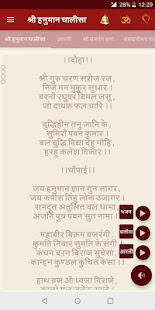 12:29
श्री हनुमान चालीसा
श्री हनुमान चालीसा आरती श्री बजरंग बाण संकटमोचन
।।दोहा।।
श्री गुरु चरण सरोज रज,
निज मन मुकुर सुधार ।
बरनौं रघुबर बिमल जसु,
जो दायक फल चारि ।।
बुद्धिहीन तनु जानि के,
सुमिरौं पवन कुमार ।
बल बुद्धि विद्या देहु मोहि,
हरहु कलेश विकार ।।
।।चौपाई।।
जय हनुमान ज्ञान गुन सागर,
जय कपीस तिहुं लोक उजागर ।
रामदूत अतुलित बल धामा
अंजनि पुत्र पवन सुत नामा ।।
महाबीर बिक्रम बजरंगी
कुमति निवार सुमति के संगी ।
कंचन बरन बिराज सुबेसा,
कानन कुण्डल कुंचित केसा ।।
हाथ ब्रज औ ध्वजा विराजे,
भजन
चालीसा
आरती